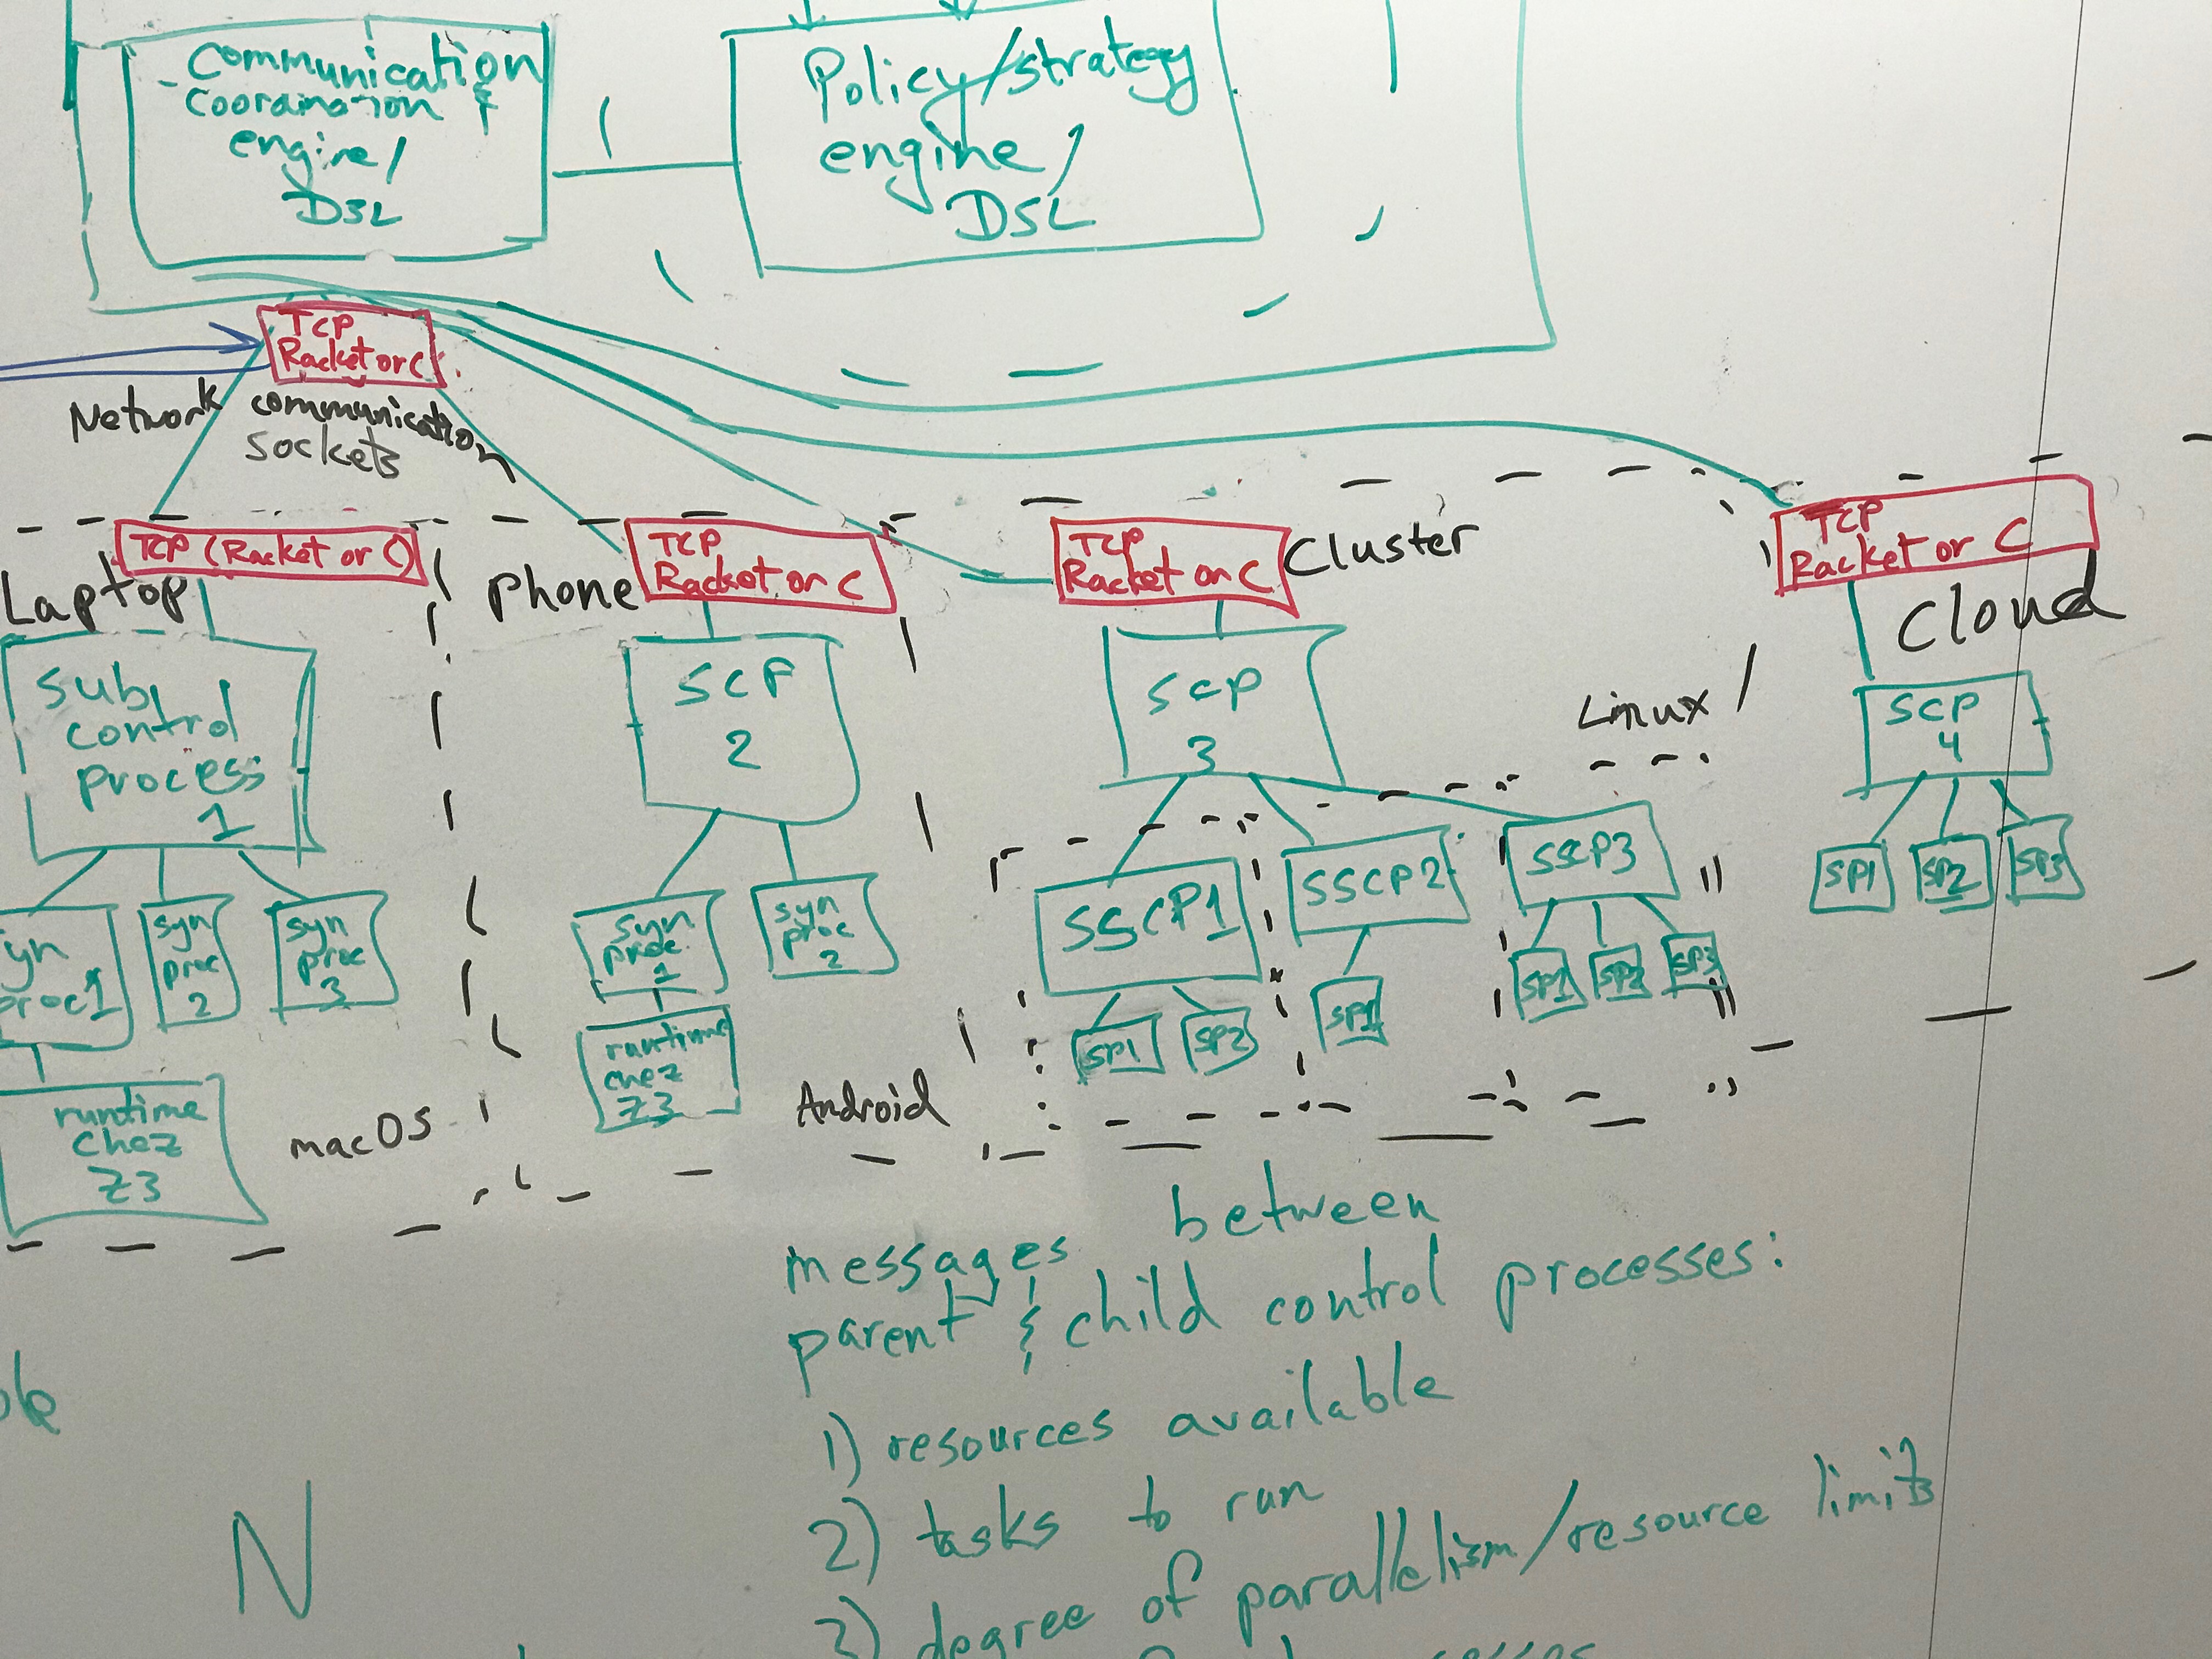 Communication
Coordination &
engine/
DSL
Policy/strategy
engine/
DSL
TCP
Racket or C
Network communication
sockets
TCP (Racket or C)
Laptop
sub
control
process
1
syn
proc
2
syn
proc
3
runtime
chez
Z3
macOS
TCP
Racket or C
Phone
SCP
2
syn
proc
1
syn
proc
2
runtime
chez
Z3
Android
TCP
Racket or C
Cluster
SCP
3
Linux/
SSCP1
SSCP2
SSCP3
SP1
SP2
SP1
SP1
SP2
SP3
TCP
Racket or C
Cloud
SCP
4
SP1
SP2
SP3
messages between
parent & child control processes:
1) resources available
2) tasks to run
3) degree of parallelism/resource limits
N